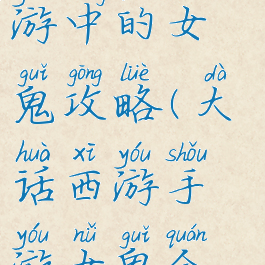 游中的女
guǐ gōng lüè dà
鬼攻略(大
huà xī yóu shǒu
话西游手
yóu nǚ guǐ quán
游女鬼全